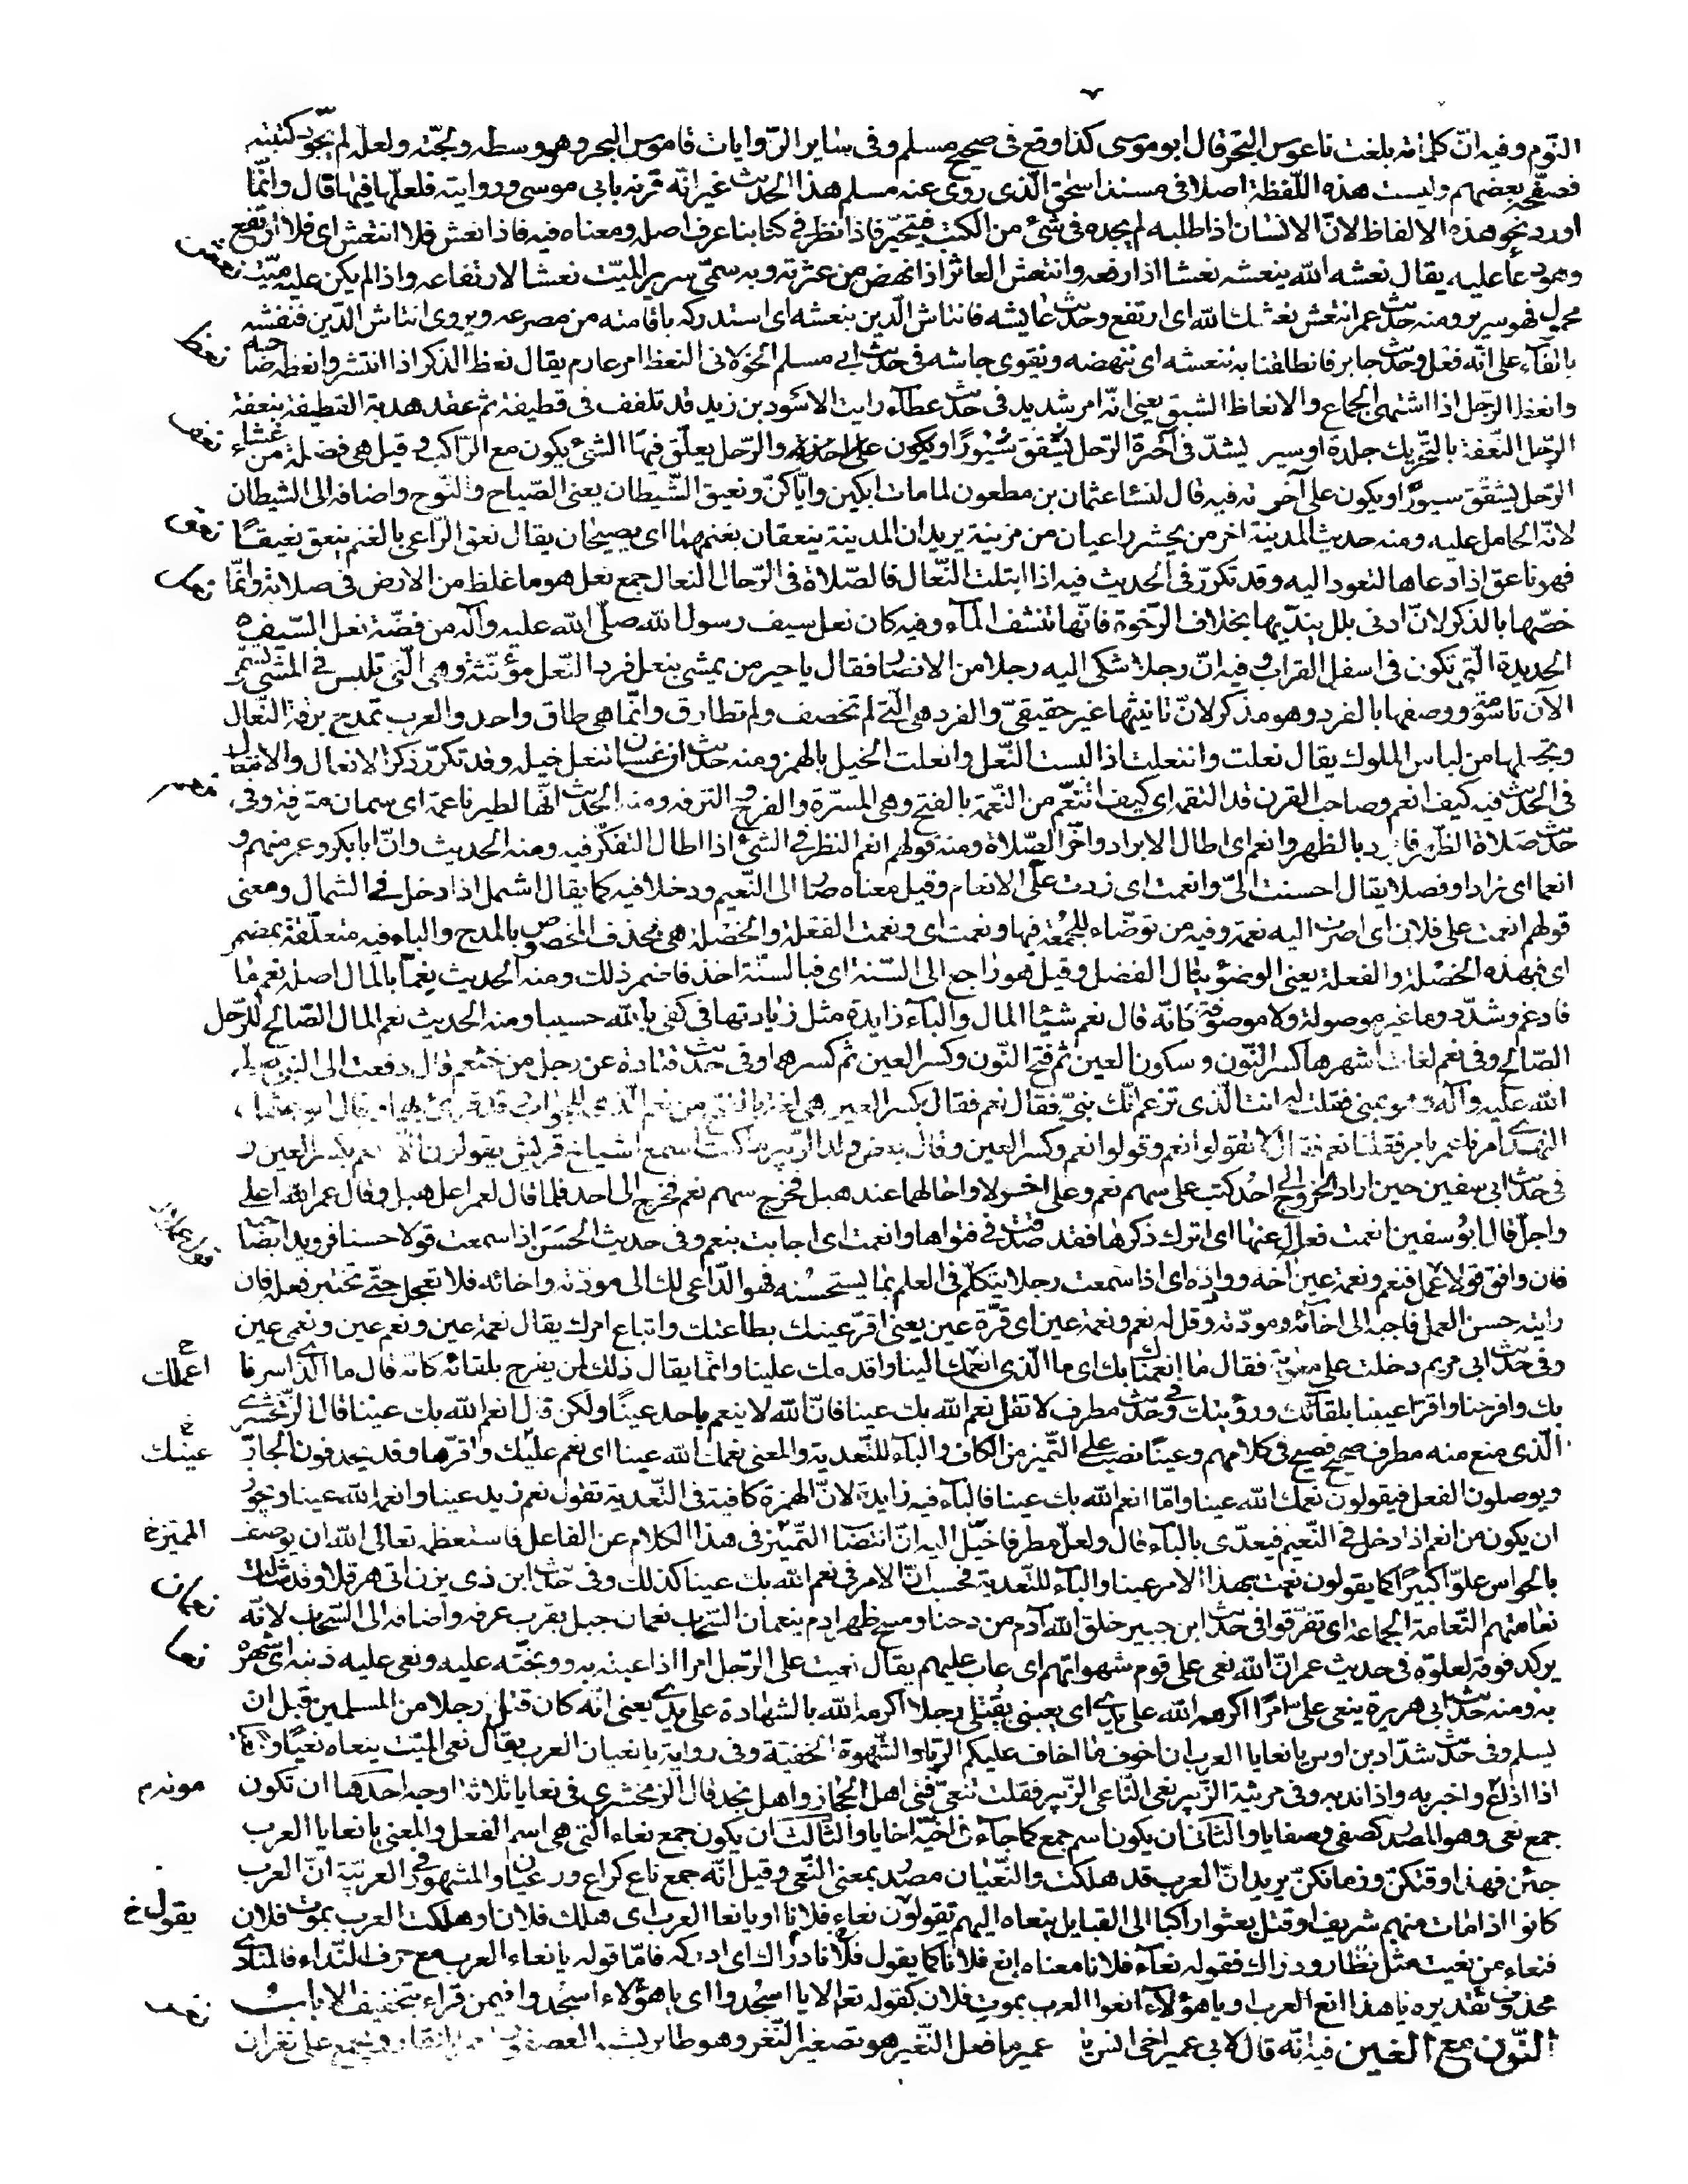 النّوم وفيه انّ كلماته بلغت ناعوس البحر قال ابو موسى كذا وقع فى صحيح مسلم وفى ساير الرّوايات قاموس البحر وهو وسطه ولجّته ولعلّه لم يجوّد كتبته
فصحّفه بعضهم وليست هذه اللّفظة اصلا فى مسند اسحق الّذى روى عنه مسلم هذا الحديث غير انّه قرنه بابى موسى وروايته فلعلّها فيها قال وانّما
اورد نحو هذه الالفاظ لانّ الانسان اذا طلبه لم يجده فى شئ من الكتب فيتحيّر فاذا نظر فى كتابنا عرف اصله ومعناه فيه فاذا نعش فلا انتعش اى فلا ارتفع
وهو دعا عليه يقال نعشه الله ينعشه نعشا اذا رفعه وانتعش العاثر اذا نهض من عثرته وبه سمّى سرير الميّت نعشا لارتفاعه واذا لم يكن عليه ميّت
محمول فهو سرير ومنه حديث عمر انتعش نعشك الله اى ارتفع وحديث عايشه فانتاش الدّين بنعشه اى استدركه باقامته من مصرعه ويروى انتاش الدّين فنعشه
بالفاء على انّه فعل وحديث جابر فانطلقنا به ننعشه اى ننهضه ونقوى جاشه فى حديث ابى مسلم الخولانى النعظ امر عارم يقال نعظ الذكر اذا انتشر وانعظه صاحبه
وانعظ الرّجل اذا اشتهى الجماع والانعاظ الشبق يعنى انّه امر شديد فى حديث عطاء رايت الاسود بن زيد قد تلفف فى قطيفة ثم عقد هدبة القطيفة بنعفة
الرّحل النّعفة بالتّحريك جلدة او سير يشدّ فى آخرة الرّحل يعلّق فيها الشئ يكون مع الرّاكب وقيل هى فضلة من غشاء
الرّحل يشقّق سيورًا ويكون على آخرته فيه قال لنساء عثمان بن مظعون لما مات ابكين وايّاكنّ ونعيق الشّيطان يعنى الصّياح والنّوح واضافه الى الشيطان
لانّه الحامل عليه ومنه حديث المدينة اخر من يحشر راعيان من مزينة يريدان المدينة ينعقان بغنمهما اى يصيحان يقال نعق الرّاعى بالغنم ينعق نعيقًا
فهو ناعق اذا دعاها لتعود اليه وقد تكرّر فى الحديث فيه اذا ابتلت النّعال فالصّلاة فى الرّحال النعال جمع نعل هو ما غلظ من الارض فى صلابة وانّما
خصّها بالذكر لانّ ادنى بلل ينديها بخلاف الرّخوة فانّها تنشف الماء وفيه كان نعل سيف رسول الله صلّى الله عليه وآله من فضّة نعل السّيف
الحديدة الّتى تكون فى اسفل القراب وفيه انّ رجلا شكى اليه رجلا من الانصار فقال يا خير من يمشى بنعل فرد النّعل مؤنّثة وهى الّتى تلبس فى المشى تسمّى
الآن تاسومة ووصفها بالفرد وهو مذكر لانّ تانيثها غير حقيقىّ والفرد هى الّتى لم تخصف ولم تطارق وانّما هى طاق واحد والعرب تمدح برقة النّعال
وتجعلها من لباس الملوك يقال نعلت وانتعلت اذا لبست النّعل وانعلت الخيل بالهمز ومنه حديث انّ غسّان تنعل خيلها وقد تكرّر ذكر الانعال والانتعال
فى الحديث فيه كيف انعم وصاحب القرن قد التقمه اى كيف اتنعّم من النّعمة بالفتح وهى المسرّة والفرح والترفه ومنه الحديث انّها لطير ناعمة اى سمان مترفة وفى
حديث صلاة الظّهر فابرد بالظهر وانعم اى اطال الابراد واخّر الصّلاة ومنه قولهم انعم النظر فى الشئ اذا اطال التفكّر فيه ومنه الحديث وانّ ابا بكر وعمر منهم و
انعما اى زادا وفضلا يقال احسنت الىّ وانعمت اى زدت علىّ الانعام وقيل معناه صارا الى النّعيم ودخلا فيه كما يقال اشمل اذا دخل فى الشمال ومعنى
قولهم انعمت على فلان اى اصرت اليه نعمة وفيه من توضّاء للجمعة فبها ونعمت اى ونعمت الفعلة والخصلة هى فحذف المخصوص بالمدح والباء فيه متعلّقة بمضمر
اى فبهذه الخصلة والفعلة يعنى الوضوء ينال الفضل وقيل هو راجع الى السّنة اى فبالسنّة اخذ فاضمر ذلك ومنه الحديث نعمّا بالمال اصله نعم ما
فادغم وشدّد وما غير موصولة ولا موصوفة كانّه قال نعم شيئا المال والباء زايدة مثل زيادتها فى كفى بالله حسيبا ومنه الحديث نعم المال الصّالح للرّجل
الصّالح وفى نعم لغات اشهرها كسر النّون وسكون العين ثم فتح النّون وكسر العين ثم كسرهما وفى حديث قتادة عن رجل من خثعم قال دفعت الى النبى صلى
الله عليه وآله وهو بمنى فقلت له انت الّذى تزعم انّك نبىّ فقال نعم فقال بكسر العين هى لغة
النهدى امرنا عمر بامر فقلنا نعم فقال لا تقولوا نعم وقولوا نعم وكسر العين وقال بعض ولد الزّبير ما كنت اسمع اشياخ قريش يقولون الّا نعم بكسر العين و
فى حديث ابى سفين حين اراد الخروج الى احد كتب على سهم نعم وعلى اخر لا واجالهما عند هبل فخرج سهم نعم فخرج الى احد فلما قال لعمر اعل هبل وقال عمر الله اعلى
واجلّ قال ابو سفين انعمت فعال عنها اى اترك ذكرها فقد صدقت فى فتواها وانعمت اى اجابت بنعم وفى حديث الحسن اذا سمعت قولا حسنا فرويدا بصاحبه
فان وافق قول عملا فنعم ونعمة عين اخه ووادّه اى اذا سمعت رجلا يتكلّم فى العلم بما يستحسنه فهو الدّاعى لك الى مودّته واخائه فلا تعجل حتّى تختبر فعله فان
رايته حسن العمل فاجبه الى اخائه ومودّته وقل له نعم ونعمة عين اى قرّة عين يعنى اقرّ عينك بطاعتك واتباع امرك يقال نعمة عين ونعم عين ونعمى عين
وفى حديث ابى مريم دخلت على معوية فقال ما انعمنا بك اى ما الّذى اعملك الينا واقدمك علينا وانّما يقال ذلك لمن يفرح بلقائه كانّه قال ما الّذى اسرنا
بك وافرحنا واقرّ اعيننا بلقائك ورؤيتك وفى حديث مطرف لا تقل نعم الله بك عينا فانّ الله لا ينعم باحد عينًا ولكن قل انعم الله بك عينا قال الزّمخشرى
الّذى منع منه مطرف صحيح فصيح فى كلامهم وعينًا نصب على التّميز من الكاف والباء للتّعدية والمعنى نعمك الله عينا اى نعم عليك واقرّها وقد يحذفون الجارّ
ويوصلون الفعل فيقولون نعمك الله عينا وامّا انعم الله بك عينا فالباء فيه زايدة لانّ الهمزة كافية فى التّعدية تقول نعم زيد عينا وانعم الله عينا ويجوز
ان يكون من انعم اذا دخل فى النّعيم فيعدّى بالباء قال ولعلّ مطرفا خيّل اليه انّ انتصاب التّميز فى هذا الكلام عن الفاعل فاستعظمه تعالى الله ان يوصف
بالحواس علوّا كبيرًا كما يقولون نعمت بهذا الامر عينا والباء للتّعدية فحسب انّ الامر فى نعم الله بك عينا كذلك وفى حديث ابن ذى يزن اتى هرقلا وقد شالت
نعامتهم النّعامة الجماعة اى تفرّقوا فى حديث ابن جبير خلق الله آدم من دحنا ومسح ظهر آدم بنعمان السّحاب نعمان جبل بقرب عرفه واضافه الى السّحاب لانّه
يركد فوقه لعلوّه فى حديث عمر انّ الله نعى على قوم شهواتهم اى عاب عليهم يقال نعيت على الرّجل امرا اذا عبته به ووبّخته عليه ونعى عليه ذنبه اى شهره
به ومنه حديث ابى هريرة ينعى علىّ امرًا اكرمه الله على يدى اى يعيبنى بقتلى رجلا اكرمه الله بالشهادة على يدى يعنى انّه كان قتل رجلا من المسلمين قبل ان
يسلم وفى حديث شدّاد بن اوس يا نعايا العرب ان اخوف ما اخاف عليكم الرّياء والشّهوة الخفيّة وفى رواية يا نعيان العرب يقال نعى الميّت ينعاه نعيًا
اذا اذاع واخبر به واذا ندبه وفى مرثية الزّبير نعى النّاعى الزّبير فقلت تنعىّ فتى اهل الحجاز واهل نجد قال الزمخشرى فى نعايا ثلاثة اوجه احدها ان تكون
جمع نعى وهو المصدر كصفى وصفايا والثّانى ان يكون اسم جمع كما جاء فى اخيّة اخايا والثالث ان يكون جمع نعاء الّتى هى اسم الفعل والمعنى يا نعايا العرب
جئن فهذا وقتكنّ وزمانكنّ يريد انّ العرب قد هلكت والنّعيان مصدر بمعنى النّعى وقيل انّه جمع ناع كراع ورعيان والمشهور فى العربيّة انّ العرب
كانوا اذا مات منهم شريف او قتل بعثوا راكبا الى القبايل ينعاه اليهم يقولون نعاء فلانا او يا نعا العرب اى هلك فلان او هلكت العرب بموت فلان
فنعاء من نعيت مثل نظار ودراك فقوله نعاء فلانا معناه انع فلانا كما يقول دراك فلانا اى ادركه فامّا قوله يا نعاء العرب مع حرف النّداء فالمنادى
محذوف تقديره يا هذا انع العرب او يا هؤلاء انعوا العرب بموت فلان كقوله تعالى الا يا اسجدوا اى يا هؤلاء اسجدوا فيمن قراء بتخفيف الا باب
النّون مع الغين فيه انّه قال لابى عمير اخى انس يا عمير ما فعل النّغير هو تصغير النّغر وهو طاير يشبه العصفور ويجمع على نغران
نعش
نعظ
نعف
نعق
نعل
نعم
اعملك
عينك
التميز خ
نعمان
نعا
يقول خ